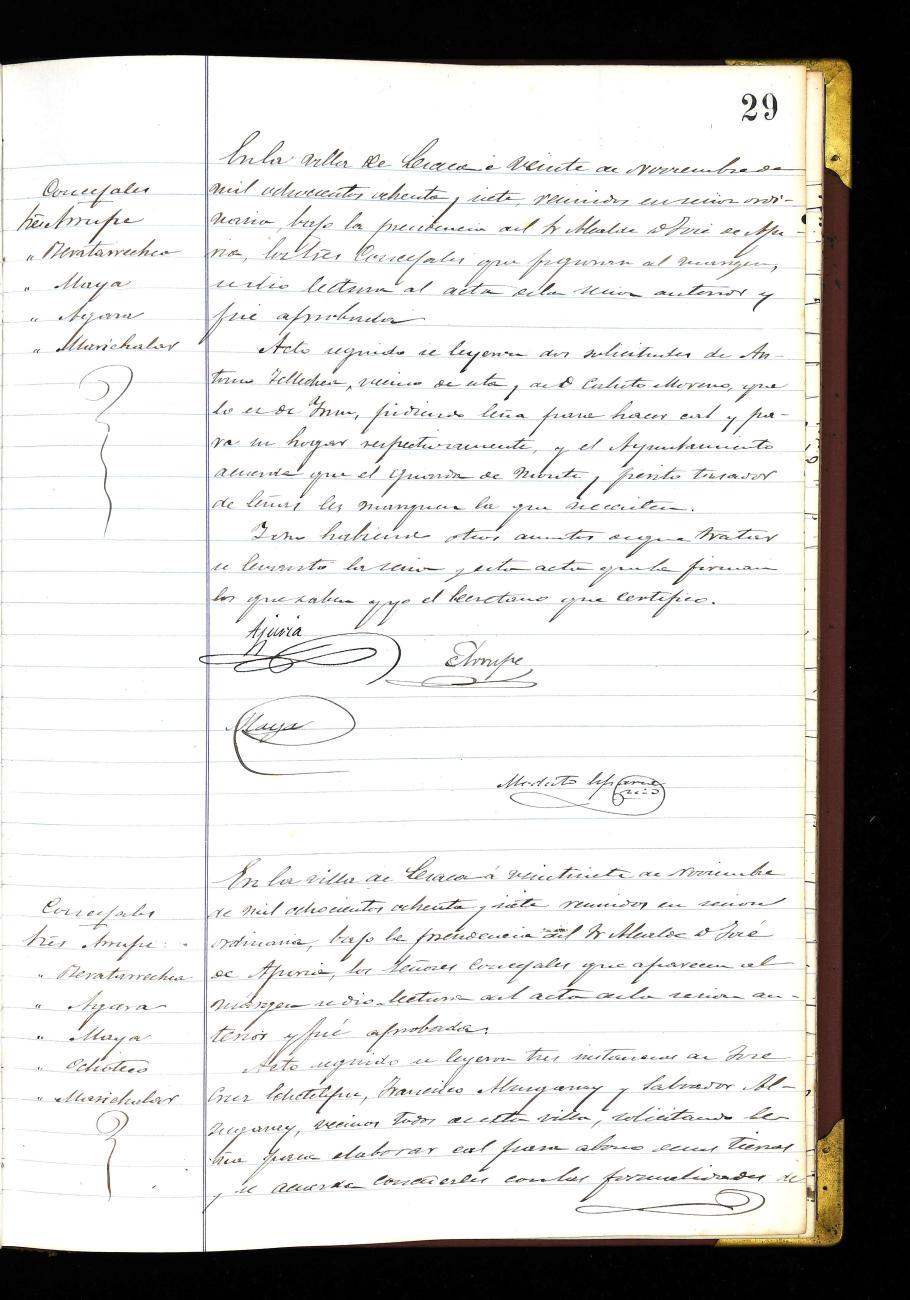 29
En la villa de Lesaca á veinte de Noviembre de
mil ochocientos ochenta y siete, reunidos en sesion ordi-
naria, bajo la presidencia del Sr Alcalde D José de Aju-
ria, los Sres Concejales que figuran al margen,
se dio lectura al acta de la sesion anterior y
fué aprobada
Concejales
Sres Arrupe
" Beratarrechea
" Maya
" Ayara
" Marichalar
Acto seguido se leyeron dos solicitudes de An-
tonio Tellechea, vecino de esta y de D Calisto Moreno, que
lo es de Irun, pidiendo leña para hacer cal y pa-
ra su hogar respectivamente, y el Ayuntamiento
acuerda que el guarda de monte y perito tasador
de leñas les marquen la que necesiten.
Y no habiendo otros asuntos de que tratar
se levantó la sesion y esta acta que la firman
los que saben y yo el Secretario que certifico.
Ajuria
Arrupe
Maya
Modesto
En la villa de Lesaca á veintisiete de Noviembre
de mil ochocientos ochenta y siete reunidos en sesion
ordinaria, bajo la presidencia del Sr Alcalde D José
de Ajuria, los Señores Concejales que aparecen al
margen se dio lectura del acta de la sesion an-
terior y fué aprobada.
Concejales
Sres Arrupe
" Beratarrechea
" Ayara
" Maya
" Ochoteco
" Marichalar
Acto seguido se leyeron tres instancias de José
Cruz Francisco Almganey y Salvador Al-
mganey, vecinos todos de esta villa, solicitando le-
ña para elaborar cal para abono de sus tierras
y se acuerda concederles con las formalidades de